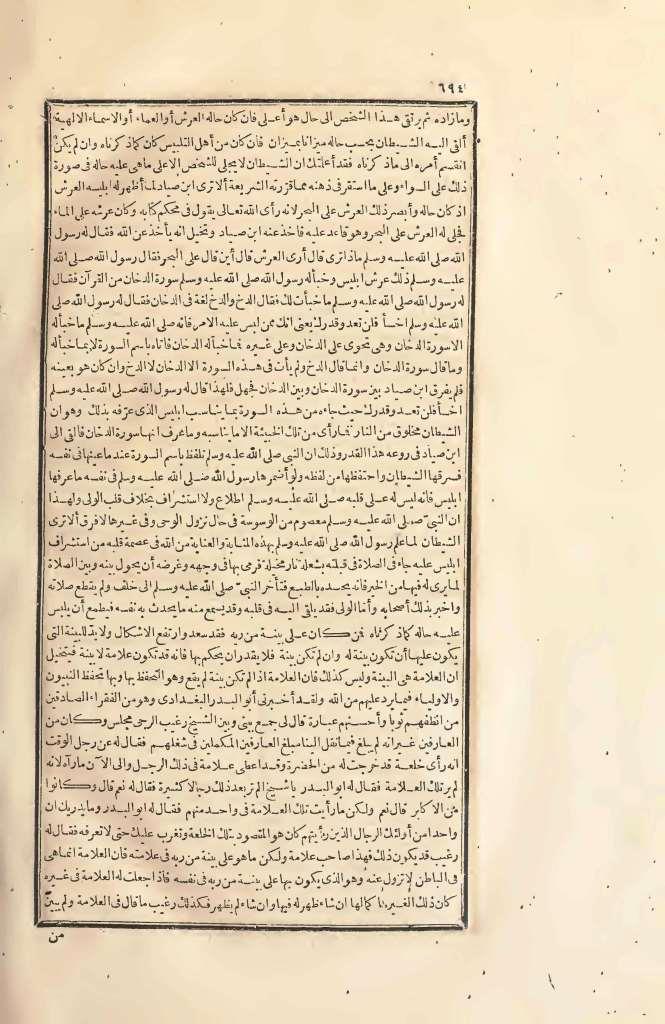 ٦٩٤
وما زاده ثم يرتقى هذا الشخص الى حال هو أعلى فان كان حاله العرش أو العماء أو الاسماء الالهية
ألقى اليه الشيطان بحسب حاله ميزانا بميزان فان كان من أهل التلبيس كان كماذكرناه وان لم يكن
انقسم أمره الى ماذكرناه فقد أعلمتك ان الشيطان لا يجلى للشخص الاعلى ماهى عليه حاله فى صورة
ذلك على السواء وعلى ما استقر فى ذهنه مما قررته الشريعة ألا ترى ابن صياد لما أظهر له ابليس العرش
اذ كان حاله وأبصر ذلك العرش على البحر لانه رأى الله تعالى يقول فى محكم كتابه وكان عرشه على الماء
فجلى له العرش على البحر وهو قاعد عليه فاخذ عنه ابن صياد وتخيل انه يأخذ عن الله فقال له رسول
الله صلى الله عليه وسلم ماذا ترى قال أرى العرش قال أين قال على البحر فقال رسول الله صلى الله
عليه وسلم ذلك عرش ابليس وخبأ له رسول الله صلى الله عليه وسلم سورة الدخان من القرآن فقال
له رسول الله صلى الله عليه وسلم ما خبأت لك فقال الدخ والدخ لغة فى الدخان فقال له رسول الله صلى
الله عليه وسلم اخسأ فلن تعدو قدرك يعنى انك ممن لبس عليه الامر فانه صلى الله عليه وسلم ما خبأ له
الا سورة الدخان وهى تحتوى على الدخان وعلى غيره فما خبأ له الدخان فاتاه باسم السورة لا بما خبأ له
وما قال سورة الدخان وانما قال الدخ ولم يأت فى هذه السورة الا الدخان لا الدخ وان كان هو بعينه
فلم يفرق ابن صياد بين سورة الدخان وبين الدخان فجهل فلهذا قال له رسول الله صلى الله عليه وسلم
اخسأ فلن تعدو قدرك حيث جاءه من هذه السورة بما يناسب ابليس الذى عرّفه بذلك وهو ان
الشيطان مخلوق من النار فما رأى من تلك الخبيئة الا ما يناسبه وما عرف انها سورة الدخان فالقى الى
ابن صياد فى روعه هذا القدر وذلك ان النبى صلى الله عليه وسلم تلفظ باسم السورة عند ما عينها فى نفسه
فسرقها الشيطان واحتفظها من لفظه ولو أضمرها رسول الله صلى الله عليه وسلم فى نفسه ما عرفها
ابليس فانه ليس له على قلبه صلى الله عليه وسلم اطلاع ولا استشراف بخلاف قلب الولى ولهذا
ان النبىّ صلى الله عليه وسلم معصوم من الوسوسة فى حال نزول الوحى وفى غيرها لا فرق ألا ترى
الشيطان لما علم رسول الله صلى الله عليه وسلم بهذه المثابة والعناية من الله فى عصمة قلبه من استشراف
ابليس عليه جاءه فى الصلاة فى قبلته بشعلة نار مخيلة فرمى بها فى وجهه وغرضه أن يحول بينه وبين الصلاة
لما يرى له فيها من الخير فانه يحسده بالطبع فتأخر النبىّ صلى الله عليه وسلم الى خلف ولم يقطع صلاته
واخبر بذلك أصحابه وأما الولى فقد يلقى اليه فى قلبه وقد يسمع منه ما يحدث به نفسه فيطمع أن يلبس
عليه حاله كما ذكرناه فمن كان على بينة من ربه فقد سعد وارتفع الاشكال ولا بد للبينة التى
يكون عليها أن تكون بينة له وان لم تكن بينة فلا يقدر ان يحكم بها فانه قد تكون علامة لا بينة فيتخيل
ان العلامة هى البينة وليس كذلك فان العلامة اذا لم تكن بينة لم يقع وهو التحفظ بها وبها تحفظ النبيون
والاولياء فيما يرد عليهم من الله ولقد أخبرنى أبو البدر البغدادى وهو من الفقراء الصادقين
من انظفهم ثوبا وأحسنهم عبارة قال لى جمع بينى وبين الشيخ رغيب الرحبى مجلس وكان من
العارفين غير انه لم يبلغ فيما نقل الينا مبلغ العارفين المكملين فى شغلهم فقال له عن رجل الوقت
انه رأى خلعة قد خرجت له من الحضرة وقد اعطى علامة فى ذلك الرجل والى الآن ما رآه لانه
لم ير تلك العلامة فقال له ابو البدر يا شيخ ألم تر بعد ذلك رجالا كثيرة فقال له نعم قال وكانوا
من الاكابر قال نعم ولكن ما رأيت تلك العلامة فى واحد منهم فقال له ابو البدر وما يدريك ان
واحدا من أولئك الرجال الذين رأيتهم كان هو المقصود بتلك الخلعة وتغرب عليك حتى لا تعرفه فقال له
رغيب قد يكون ذلك فهذا صاحب علامة ولكن ما هو على بينة من ربه فى علامته فان العلامة انما هى
فى الباطن لا تزول عنه وهو الذى يكون بها على بينة من ربه فى نفسه فاذا جعلت له العلامة فى غيره
كان ذلك الغير بها كمالها ان شاء ظهر له فيها وان شاء لم يظهر فكذلك رغيب ما قال فى العلامة ولم يبين
من